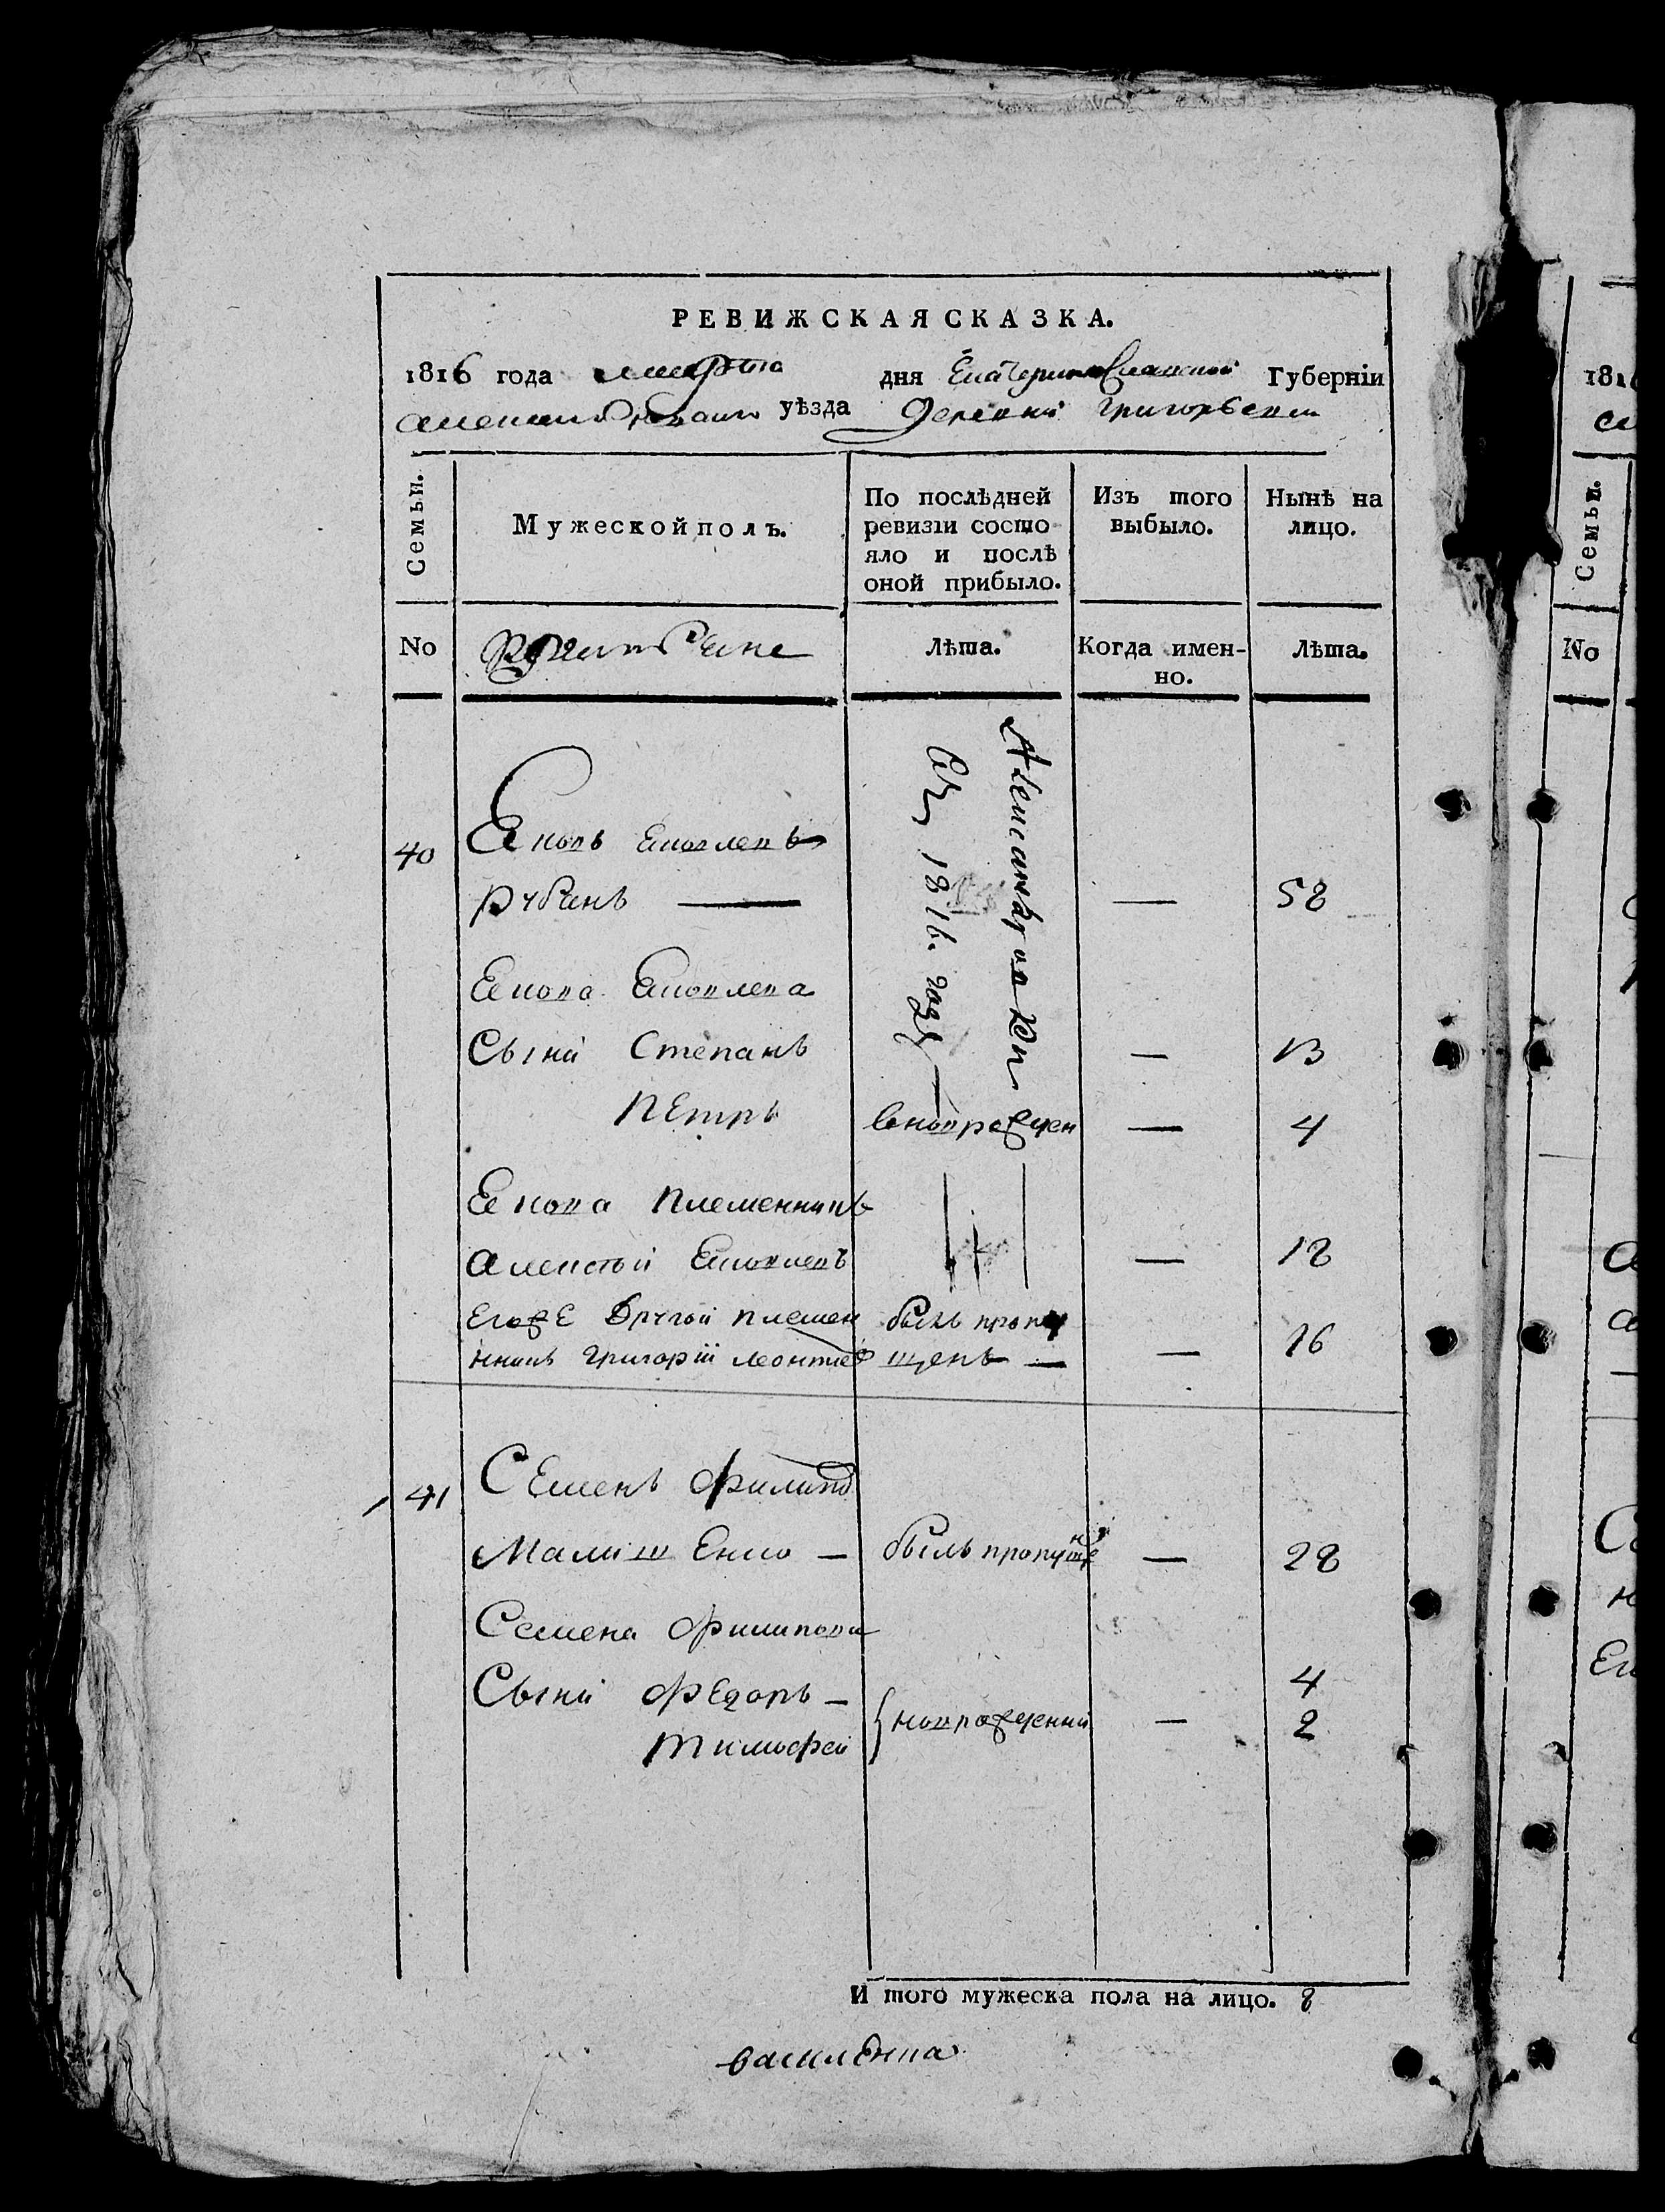 РЕВИЖСКАЯ СКАЗКА.
1816 года марта дня Екатеринославской Губерніи
Александровского уѣзда Деревни Григорьевки
Семьи.
Мужеской полъ.
По послѣдней ревизіи состо
яло и послѣ
оной прибыло.
Изъ того
выбыло.
Нынѣ на
лицо.
No
Лѣта.
Когда имен-
но.
Лѣта.
Александровки
Съ 1816 году
40 Яковъ Яковлевъ
Рубанъ — — 58
Якова Яковлева
Сыни Степанъ — 13
Петръ вновьрожден — 4
Якова племенникъ
Алексѣй Яковлевъ — 18
Егоже Другой племен былъ пропу
нникъ Григорій Леонтіев щенъ — — 16
41 Семенъ Филипов
Малишенко — былъ пропуще — 28
Семена Филипова
Сыни Федоръ — 4
Тимофей новорожденни — 2
И того мужеска пола на лицо. 8
василенка
18
Семьи.
No